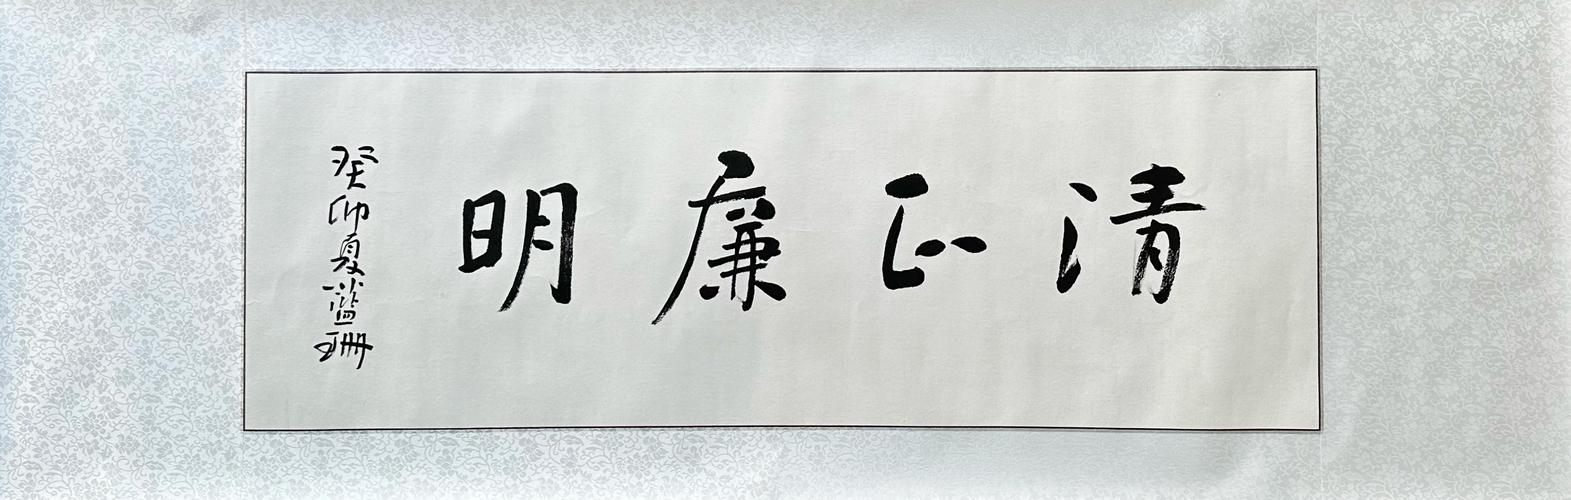 清正廉明
癸卯夏蓝珊